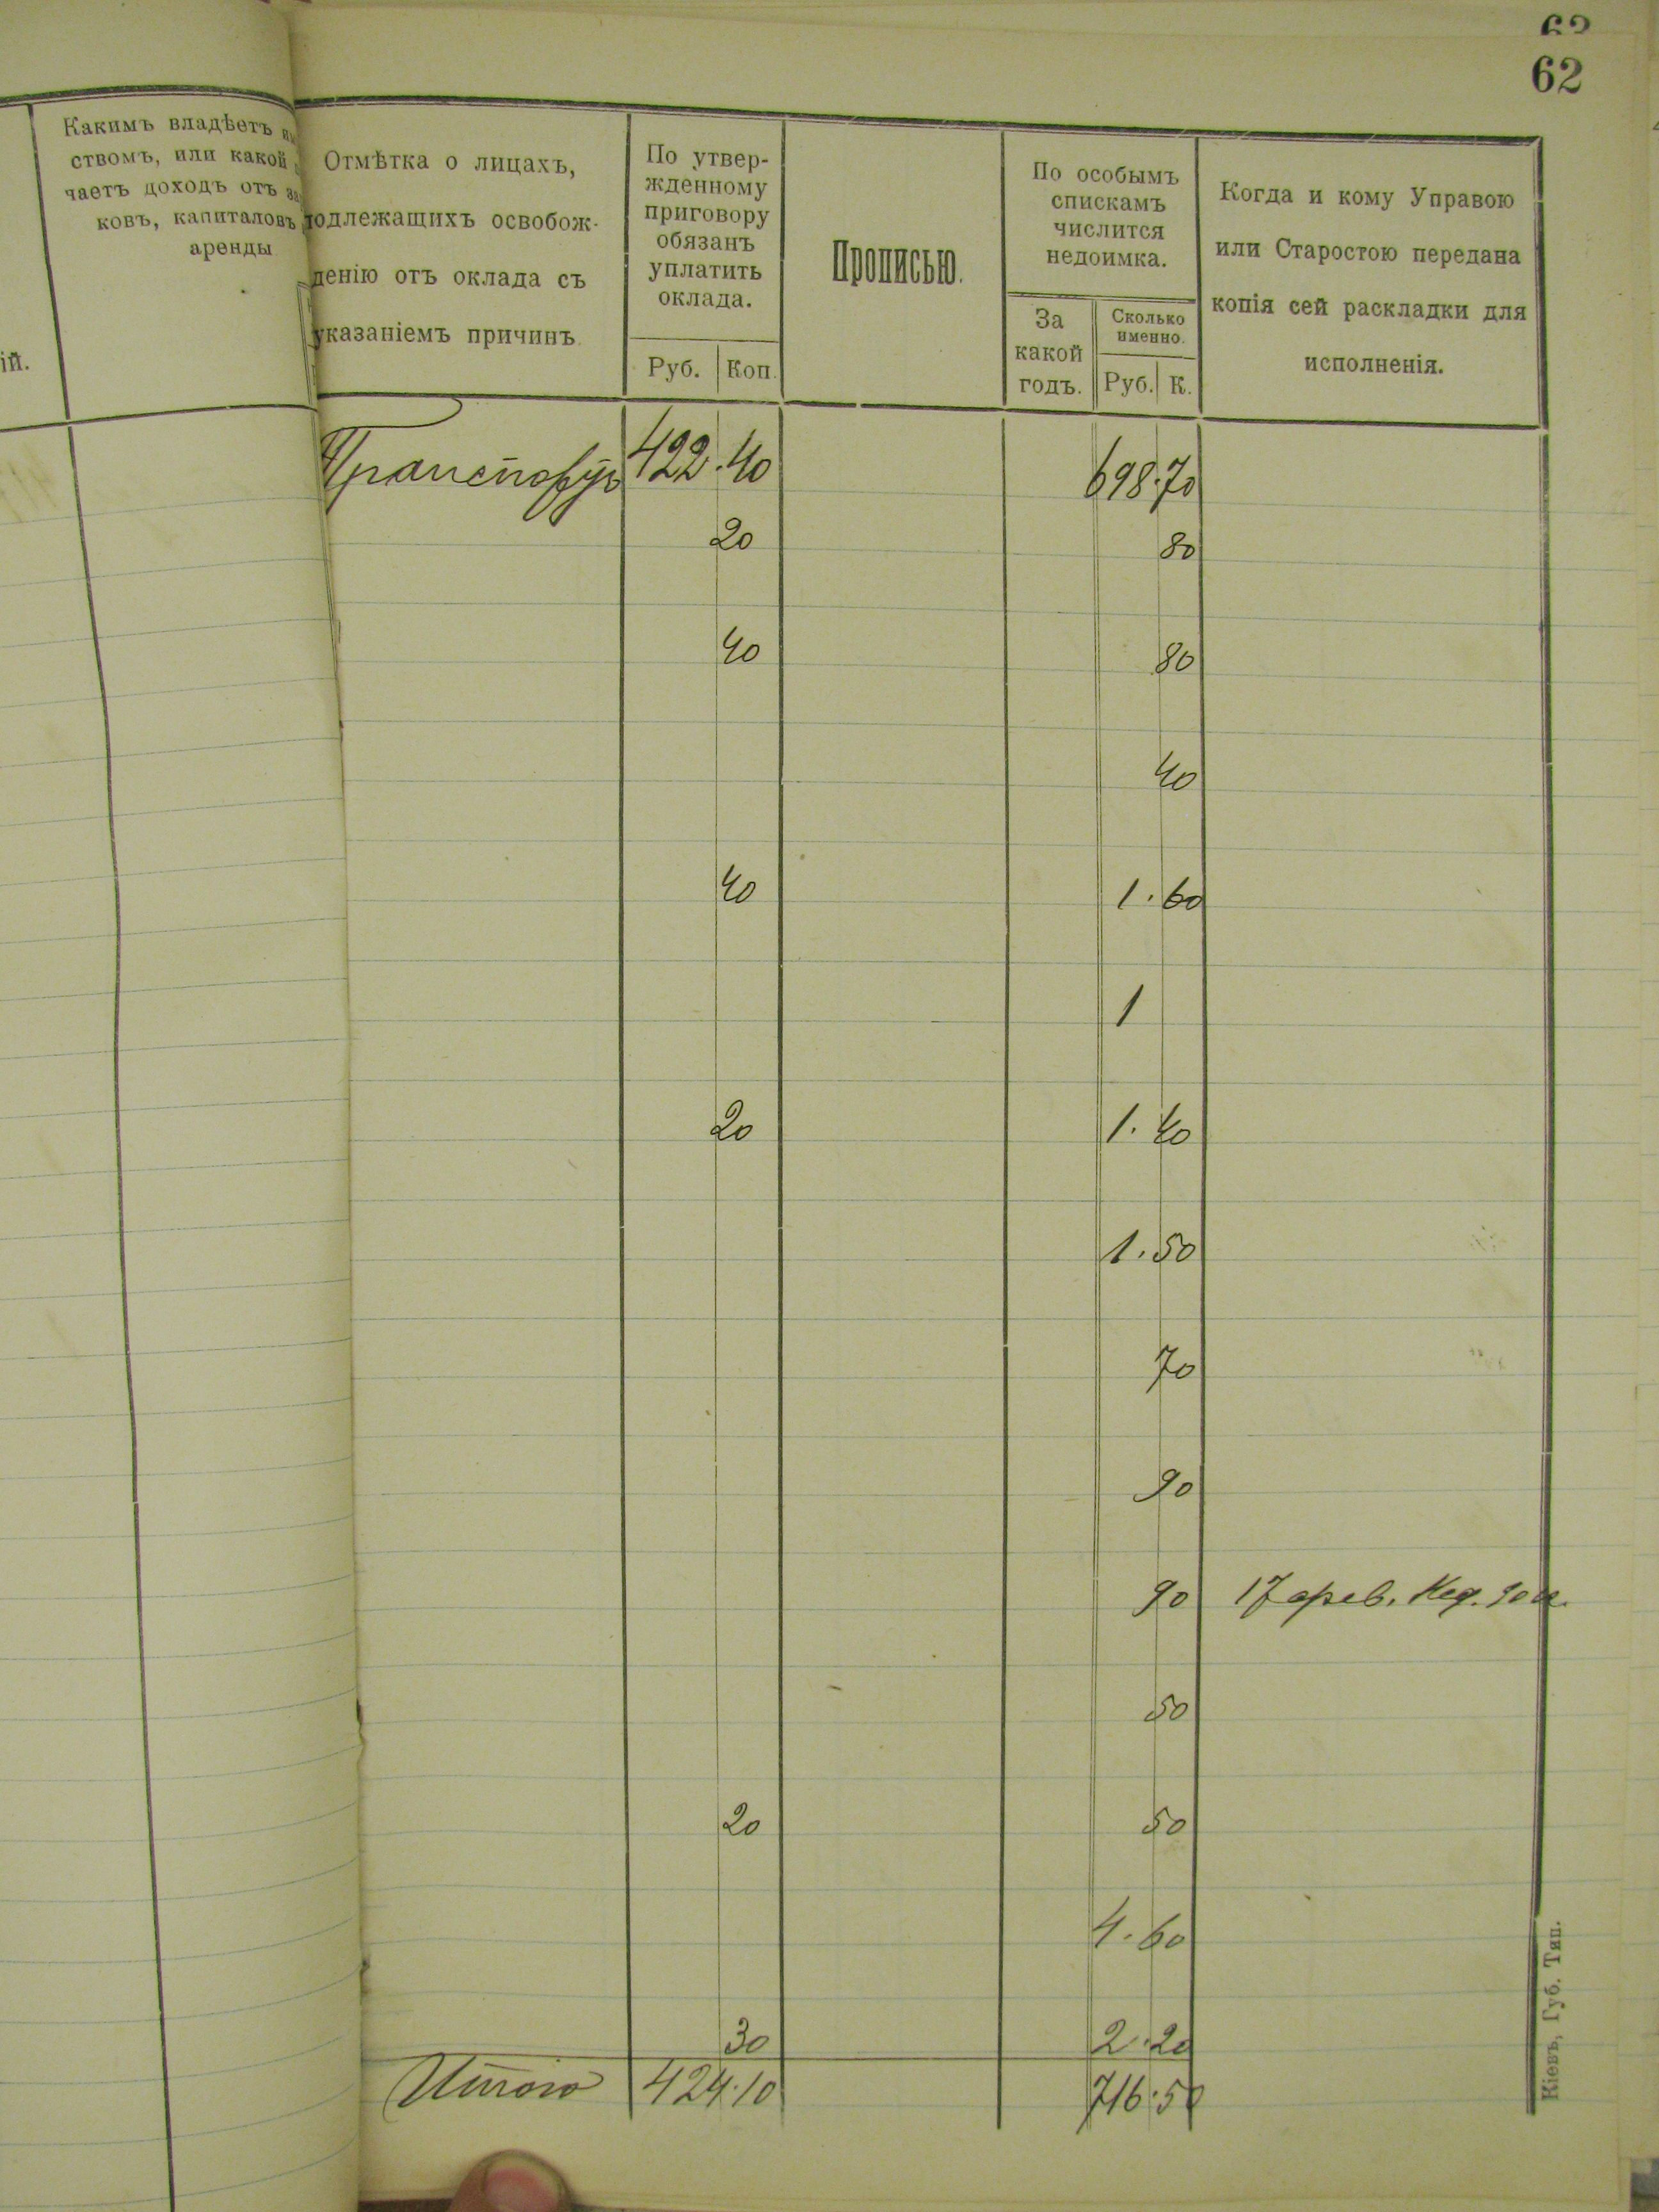 62
62
Какимъ владѣетъ
ствомъ, или какой
чаетъ доходъ отъ
ковъ, капиталовъ
аренды
ій.
Отмѣтка о лицахъ,
подлежащихъ освобож-
денію отъ оклада съ
указаніемъ причинъ
По утвер-
жденному
приговору
обязанъ
уплатить
оклада.
Руб. Коп.
Прописью.
По особымъ
спискамъ
числится
недоимка.
За
какой
годъ.
Сколько
именно.
Руб. К.
Когда и кому Управою
или Старостою передана
копія сей раскладки для
исполненія.
Транспортъ 422.40 698.70
20 80
40 80
40
40 1.60
1
20 1.40
1.50
70
90
90 17
50
20 50
4.60
30 2.20
Итого 424.10 716.50
Кіевъ, Губ. Тип.